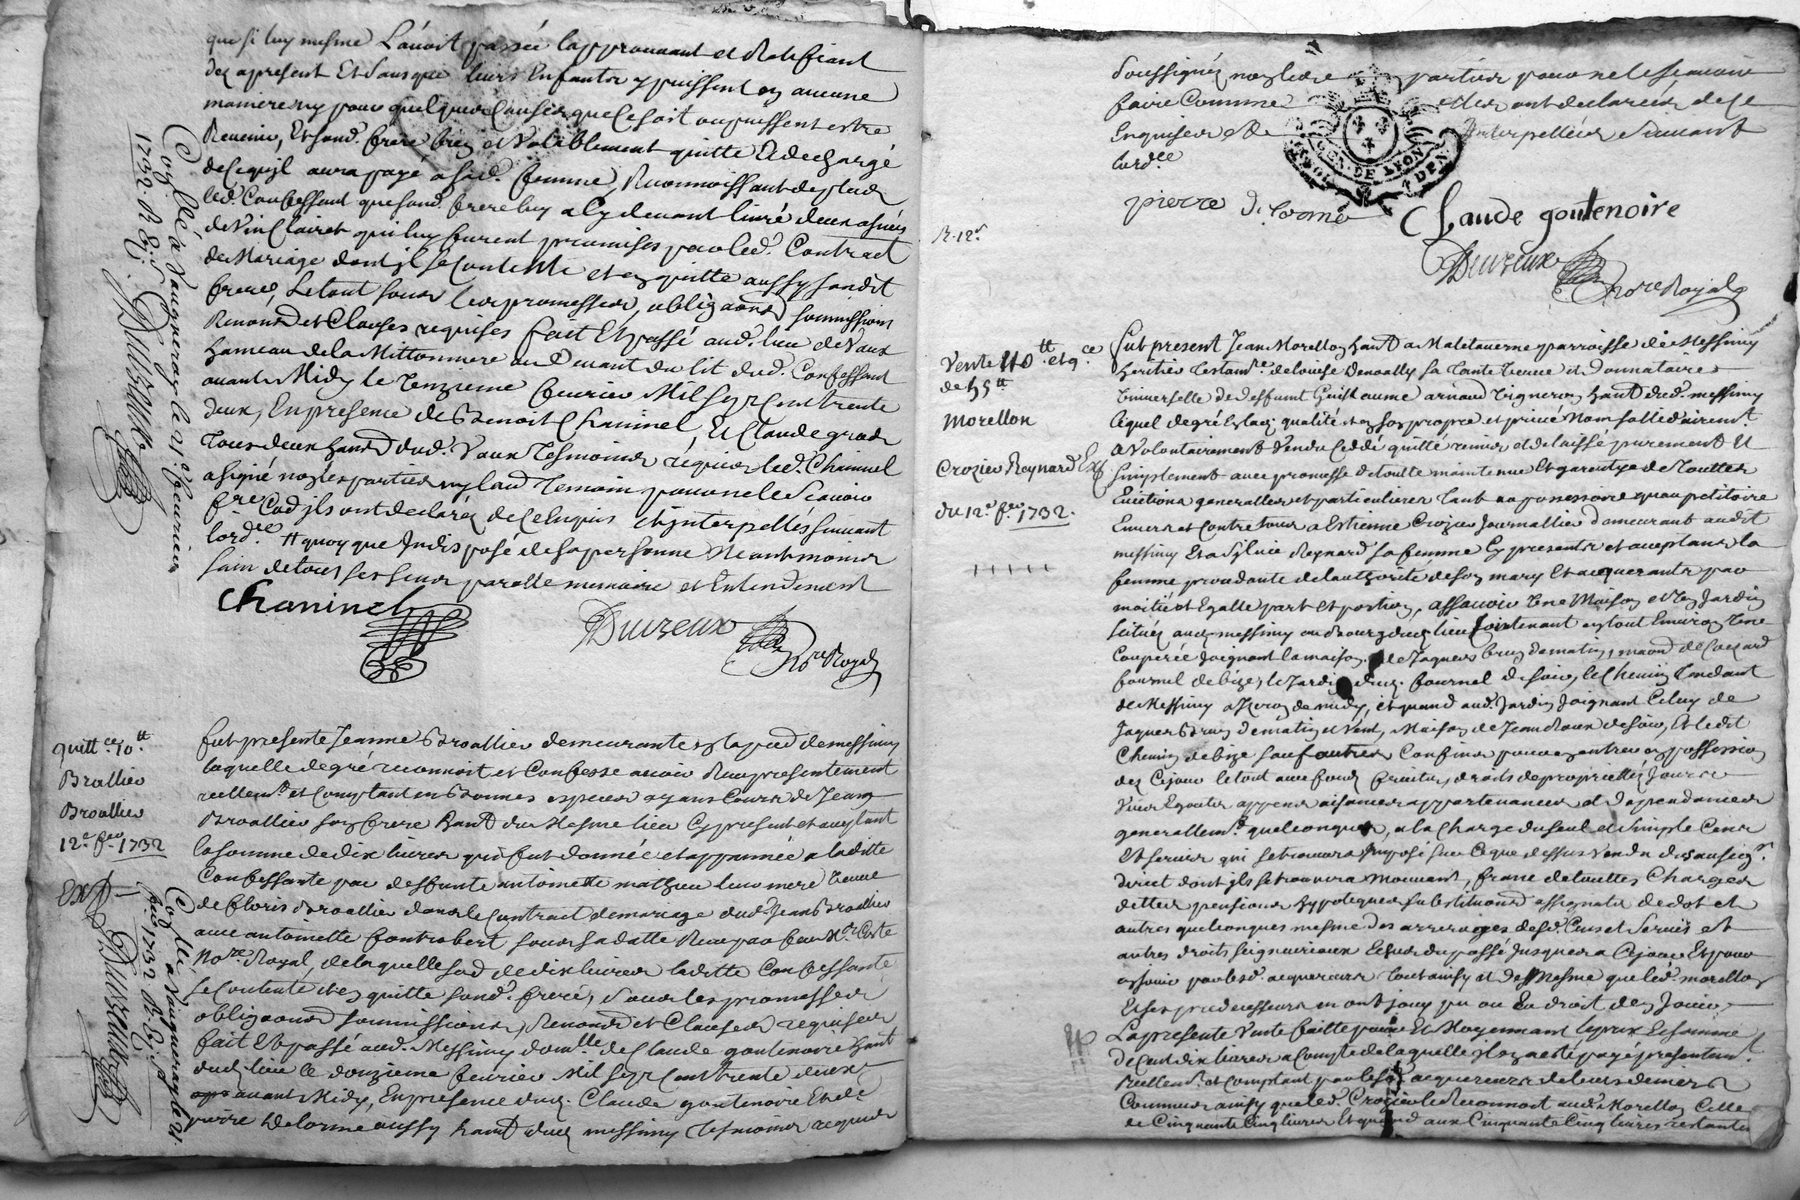 que si luy mesme L'avoit passée l'approuvant et Ratifiant
dez apresent Et sans que leurs Enfants y puissent en aucune
maniere ny pour quelques Causes que Ce soit ou puissent estre
Revenir, Et sond. frere bien et Valablement quitte Et dechargé
de Ce qu'jl aura payé a sad. femme, Reconnoissant de plus
led. Confessant que sond. frere luy a Cy devant livré deux asnées
de Vin Clairet qui luy furent promises par led. Contract
de Mariage dont jl se Contente et en quitte aussy sondit
frere, Le tout sous Les promesses, obligaons, soumissions
Renonns et Clauses requises fait Et passé aud. lieu de Vaux
hameau de la Mittonniere au Devant du lit dud. Confessant
avant Midy le Onzieme fevrier Mil sept Cent trente
deux, En presence de Benoit Chaninel, Et Claude
Tous deux habts dud. Vaux Tesmoins requis led. Chaninel
a signé non les parties ny laud. Temoin pour ne le scavoir
fre Cad jls ont declaréz de Ce Enquis Et jnterpellés suivant
lord.re # quoy que Indisposé de sa personne Neantmoins
sain de tous ses sens parolle memoire et Entendement
Chaninel
Duizeux
No.re Royal
Coner.llé à Vaugneray le 21e fevrier
1732. R.
Duizeux
quitt.ce 10.tt
Brallier
Broallier
12.e f.er 1732
Exp
fut presente Jeanne Broallier demeurante en la par. de messimy
laquelle de gré reconnoit et Confesse avoir Receu presentement
reellem.t et Comptant en Bonnes especes ayans Cours de Jean
Broallier son frere habt du Mesme lieu Cy present et aceptant
la somme de dix livres qui fut donnée et appannée a laditte
Confessante par deffunte antoinette mathieu leur mere Veuve
de Floris Broallier dans le Contract de mariage dud. Jean Broallier
avec antoinette fontrobert sous sa datte Receu par feu M.e
No.re Royal, de laquelle sod de dix livres laditte Confessante
se Contente et en quitte sond. frere, sous les promesses
obligaons soumissions, Renons et Clauses requises
fait Et passé aud. Messimy domlle de Claude goutenoire habt
dud. lieu Ce douzieme fevrier Mil sept Cent trente deux
avant Midy, En presence dud. Claude goutenoire Et de
pierre Delorme aussy habt dud. messimy Tesmoins requis
Coner.llé à Vaugneray le 21
fev. 1732 R.
Duizeux
soussignéz non lesd. parties pour ne le scavoir
faire Comme elles ont declaréez de Ce
Enquises et Interpellées suivant
lord.ce
GEN. DE LYON
pierre de lorme Claude goutenoire
R. 12.s
Duizeux
No.re Royal
Vente 110 tt et 9.ce
de 55 tt
Morellon
Crozier Reynard Exp
du 12.e f.er 1732.
fut present Jean Morellon habt a Maletaverne parroisse de Messimy
heritier Testam.re de louise Denoally sa Tante Veuve et Donnataire
Universelle de deffunt Guillaume arnaud Vigneron habt dud. messimy
lequel de gré Es noms qualités en son propre et privé Nom sollidairem.t
a Volontairement Vendu Cedé quitté remis et delaissé purement Et
simplement avec promesse de toutte maintenue Et garentye de Touttes
Evictions generalles et particulieres tant au possessoire qu'au petitoire
Envers et Contre tous a Estienne Crozier Journallier demeurant audit
messimy Et a Sylvie Reynard sa femme Cy presents et aceptans la
femme procedante de lauthorité de son mary Et acquerants par
moitié et Egalle part et portion, assavoir Une Maison et Un Jardin
situés aud. messimy au bourg dud. lieu Contenant en tout Environ Une
Couperée Joignant la maison de Jaques brun de matin,
fournel de bize, le Jardin dud. fournel de soir, le Chemin tendant
de Messimy a de midy, et quand aud. Jardin Joignant Celuy de
Jaques Brun de matin et Vent, Maison de Jean Roux de soir, Et ledit
Chemin de bize sauf autres Confins pour en entrer en possession
dez Cejour le tout avec fonds fruits, droits de proprietté, Jours
Vües Egouts appens aisances appartenances et dependances
generallem.t quelconques, a la Charge du seul et simple Cens
Et servis qui se trouvera Imposé sur Ce que dessus vendu du sauseig.r
direct dont jls se trouvera Mouvant, franc de touttes Charges
dettes pensions hypoteques substitutions assignats de dot et
autres quelconques mesme des arrerages desd. Cens et Servis et
autres droits seigneuriaux Echus du passé Jusques a Cejour Et pour
en jouir par lesd. acquereurs tout ainsy et de Mesme que led. morellon
Et ses predecesseurs en ont jouy pu ou Eu droit d'en Jouir,
La presente Vente faitte pour Et Moyennant le prix Et somme
de Cent dix livres a Compte de laquelle jl en a esté payé presentem.t
Reellem.t et Comptant par lesd. acquereurs de leurs deniers
Communs ainsy que led. Crozier le Reconnoit aud. Morellon Celle
de Cinquante Cinq livres Et quand aux Cinquante Cinq livres restantes